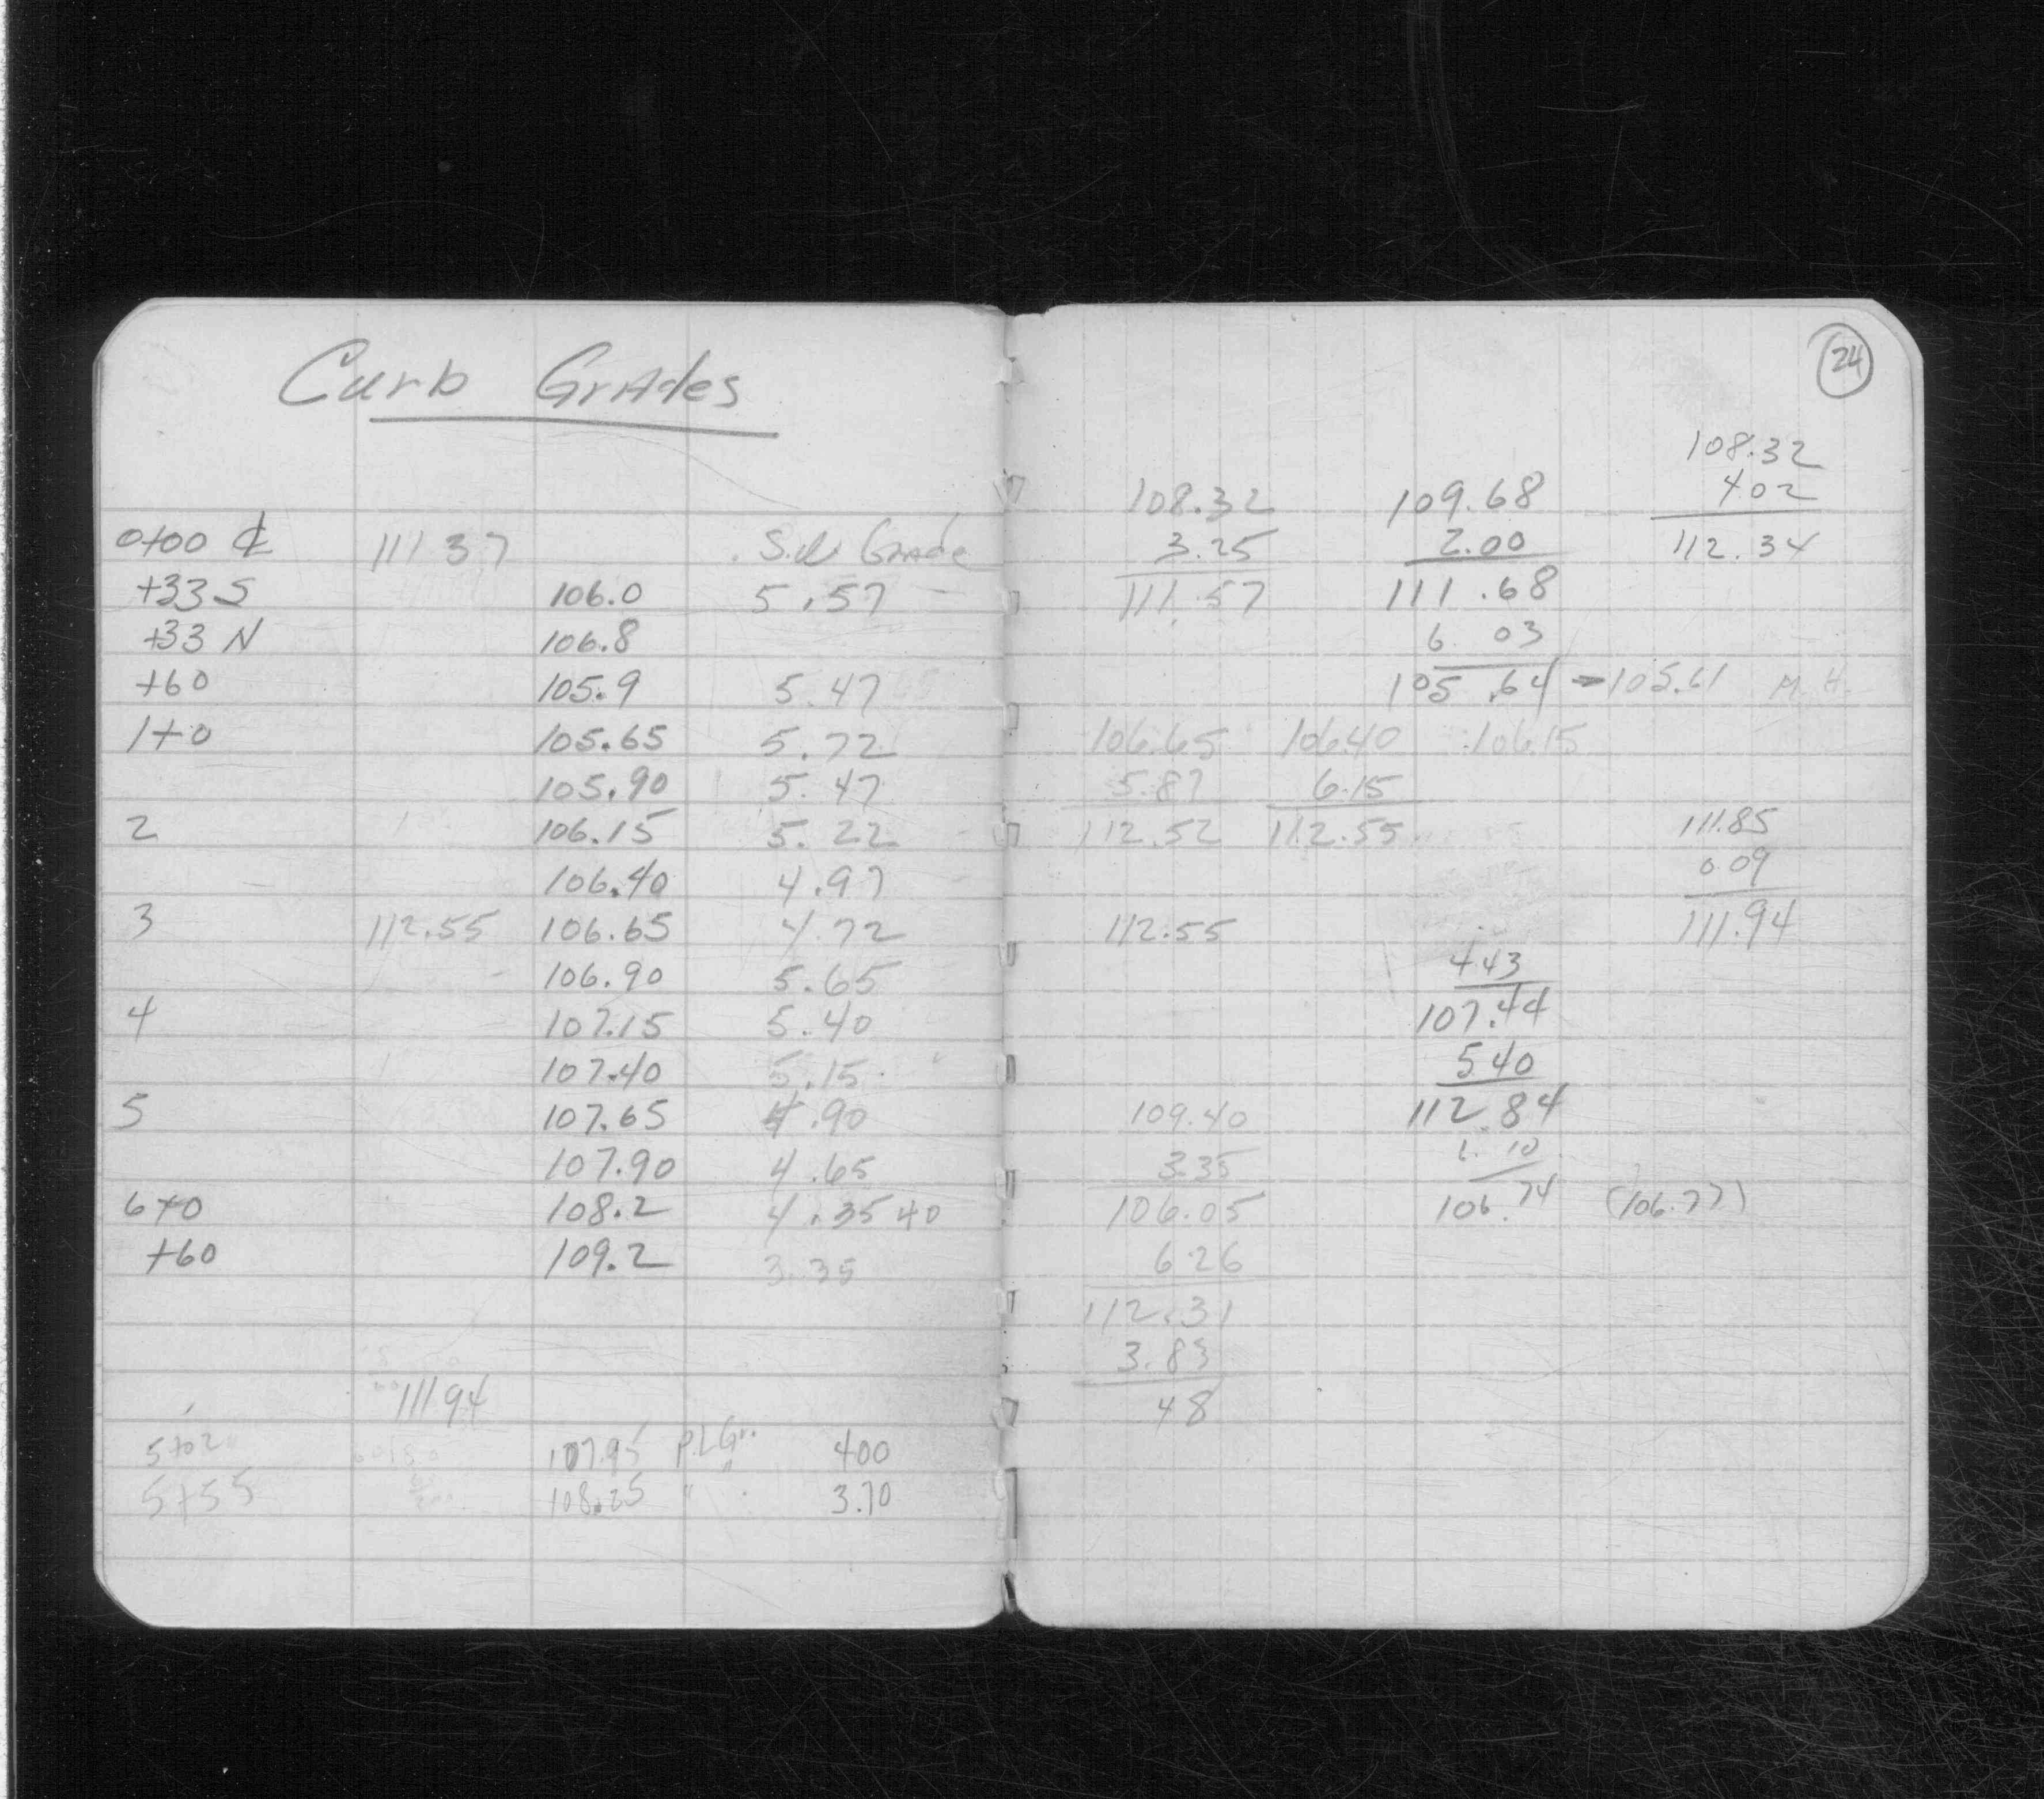 Curb Grades
0+00 ℄ 111 37 S.W Grade
+33 S 106.0 5.57
+33 N 106.8
+60 105.9 5.47
1+0 105.65 5.72
105.90 5.47
2 106.15 5.22
106.40 4.97
3 112.55 106.65 4.72
106.90 5.65
4 107.15 5.40
107.40 5.15
5 107.65 4.90
107.90 4.65
6+0 108.2 4.35 40
+60 109.2 3.35
111 94
5+02 107.95 P.L Gr. 400
5+55 108.25 " " 3.70
24
108.32
3.25
111.57
109.68
2.00
111.68
6 03
105.64 → 105.61 M.H.
108.32
402
112.34
106.65 106.40 106.15
5.87 6.15
112.52 112.55
111.85
0 09
111.94
112.55
4.43
107.44
5 40
112.84
6. 10
106.74 (106.77)
109.40
3.35
106.05
6 26
112.31
3.83
48